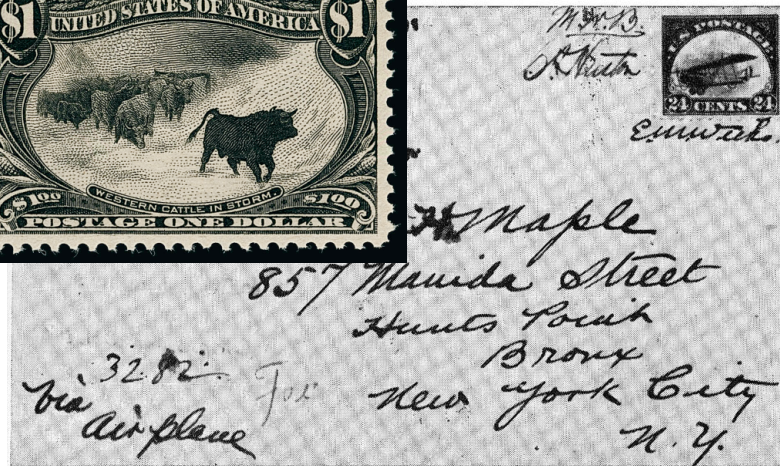 $1 UNITED STATES OF AMERICA $1
WESTERN CATTLE IN STORM.
$1.00 $1.00
POSTAGE ONE DOLLAR
W.W.B.
U.S. POSTAGE
24 CENTS 24
Maple
857 Manida Street
Hunts Point
Bronx
New York City
N.Y.
3282
Via
Air plane